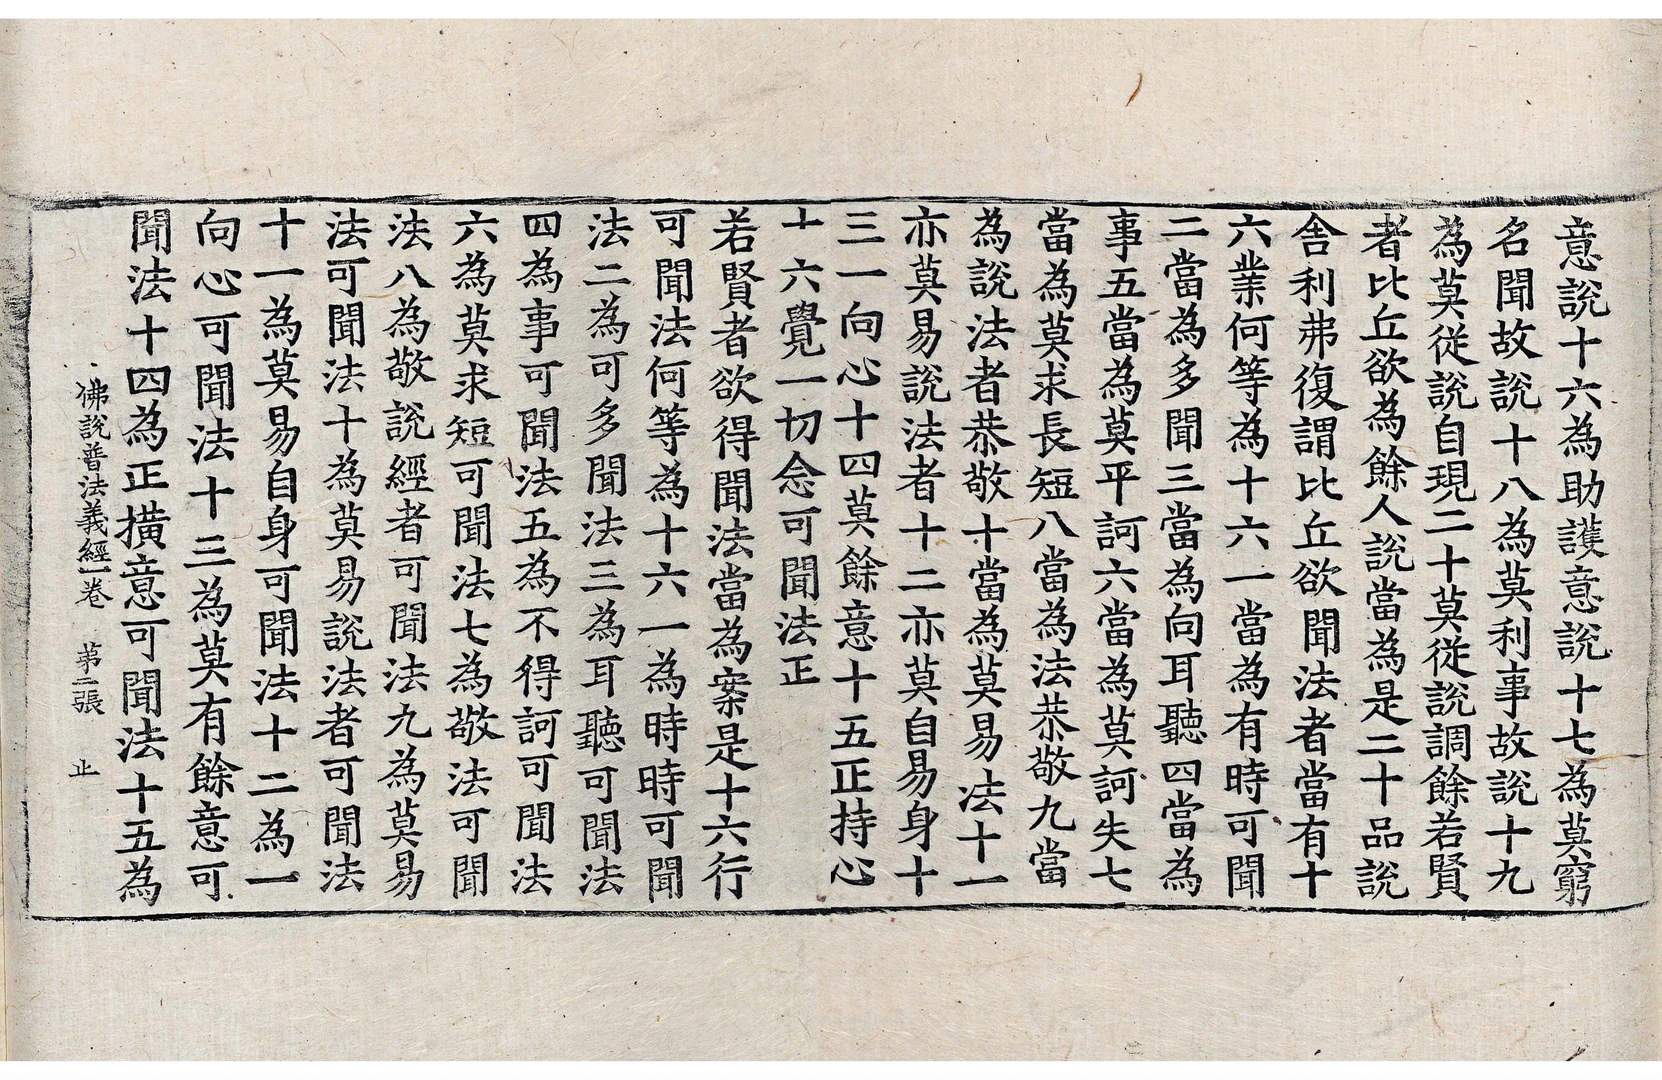 意説十六為助護意説十七為莫窮
名聞故説十八為莫利事故説十九
為莫従説自現二十莫従説調餘若賢
者比丘欲為餘人説當為是二十品説
舎利弗復謂比丘欲聞法者當有十
六業何等為十六一當為有時可聞
二當為多聞三當為向耳聽四當為
事五當為莫平訶六當為莫訶失七
當為莫求長短八當為法恭敬九當
為説法者恭敬十當為莫易法十一
亦莫易説法者十二亦莫自易身十
三一向心十四莫餘意十五正持心
十六覺一切念可聞法正
若賢者欲得聞法當為案是十六行
可聞法何等為十六一為時時可聞
法二為可多聞法三為耳聽可聞法
四為事可聞法五為不得訶可聞法
六為莫求短可聞法七為敬法可聞
法八為敬説經者可聞法九為莫易
法可聞法十為莫易説法者可聞法
十一為莫易自身可聞法十二為一
向心可聞法十三為莫有餘意可
聞法十四為正撗意可聞法十五為
佛説普法義經一卷 苐二張 止